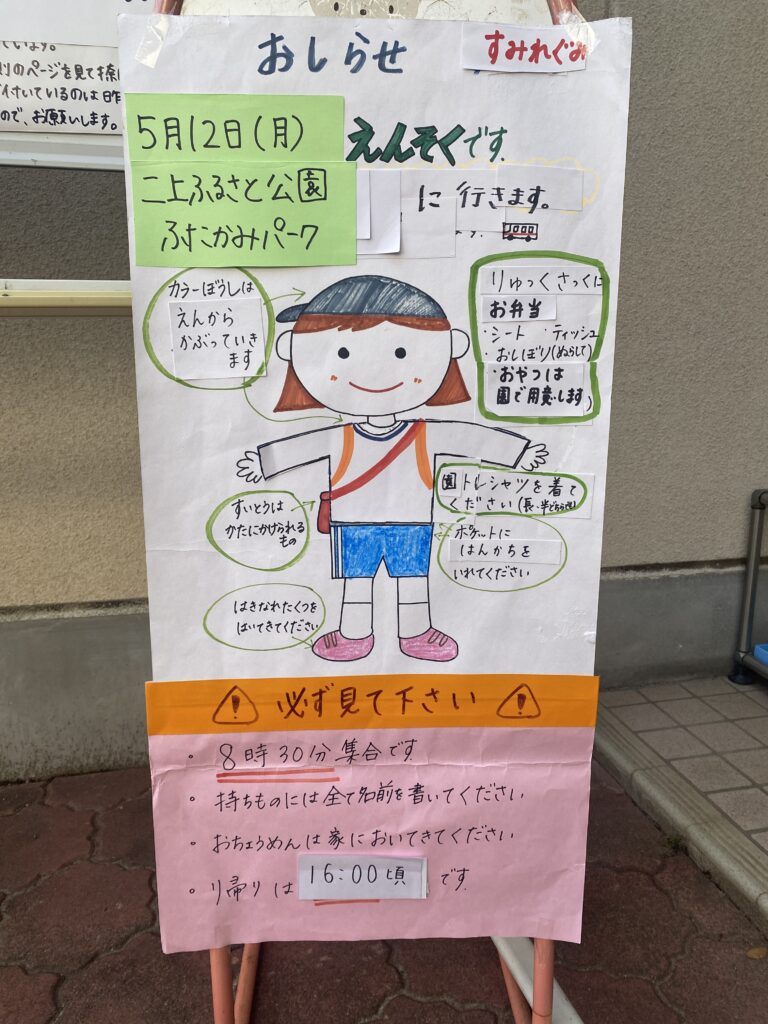 おしらせ
すみれぐみ
お願いします。
5月12日(月)
えんそくです
二上ふるさと公園
に行きます。
ふたかみパーク
カラーぼうしは
えんから
かぶっていき
ます
りゅっくさっくに
お弁当
・シート ・ティッシュ
・おしぼり(ぬらして)
・おやつは
園で用意します
園トレシャツを着て
ください(長・半どちらでも)
すいとうは
かたにかけられる
もの
ポケットに
はんかちを
いれてください
はきなれたくつを
はいてきてください
必ず見て下さい
・8時30分集合です
・持ちものには全て名前を書いてください
・おちょうめんは家においてきてください
・り帰りは 16:00頃 です